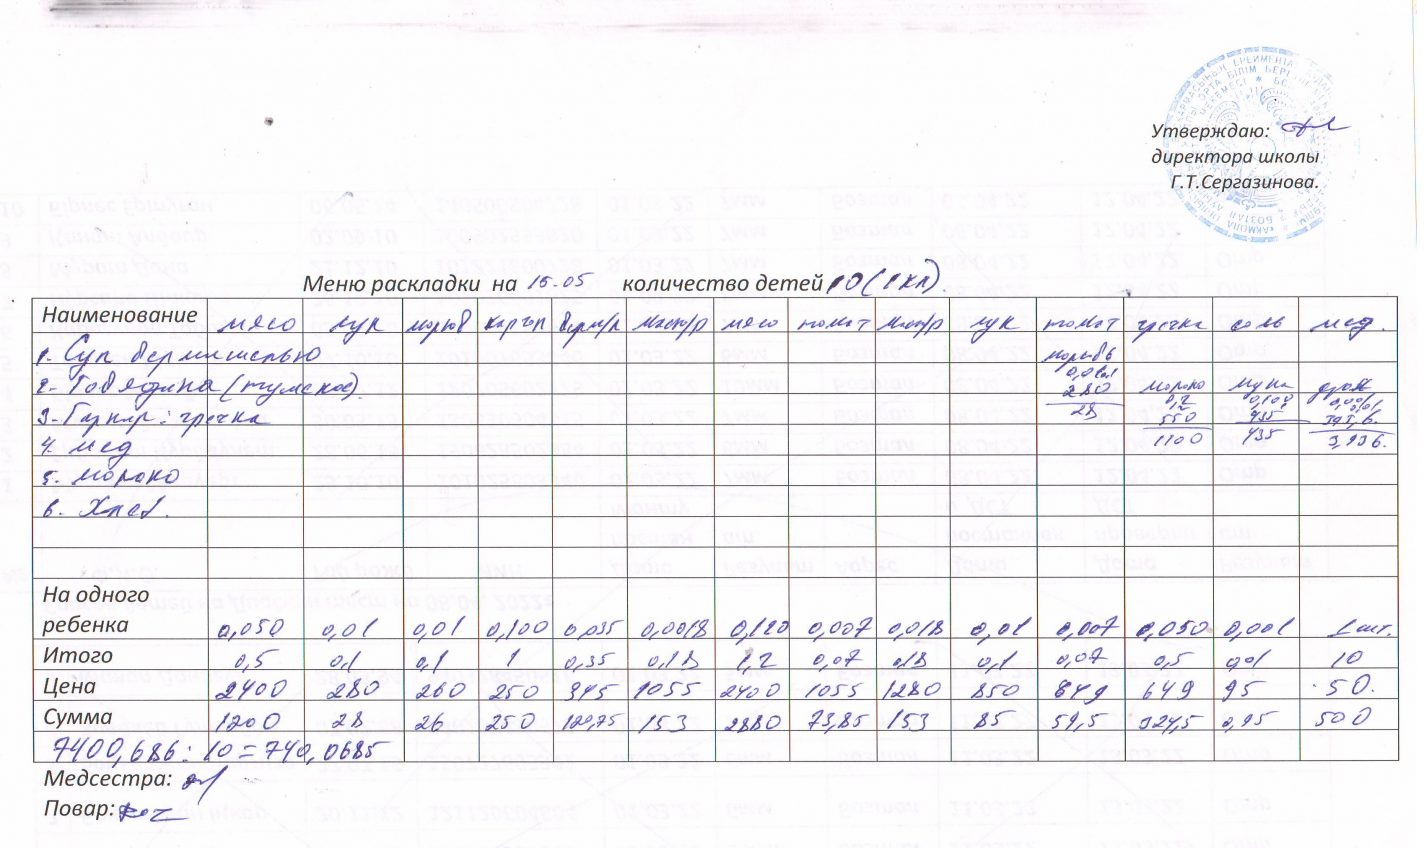 Утверждаю:
директора школы
Г.Т.Сергазинова.
Меню раскладки на 15.05 количество детей 10 (1 кл)
Наименование мясо лук морков картоп верм/л масл/р мясо томат масл/р лук томат гречка соль мед.
1. Суп вермишелью
2. Говядина (тумская)
3. Гарнир: гречка
4. мед
5. молоко
6. Хлеб.
морковь
280
28
молоко
0,2
550
1100
мука
435
435
393,6.
На одного
ребенка 0,050 0,01 0,01 0,100 0,035 0,0018 0,120 0,007 0,018 0,01 0,007 0,050 0,001 1 шт.
Итого 0,5 0,1 0,1 1 0,35 0,18 1,2 0,07 0,18 0,1 0,07 0,5 0,01 10
Цена 2400 280 260 250 345 1055 2400 1055 1280 850 849 649 95 50.
Сумма 1200 28 26 250 120,75 153 2880 73,85 153 85 59,5 324,5 0,95 500
7400,686 : 10 = 740,0685
Медсестра:
Повар: